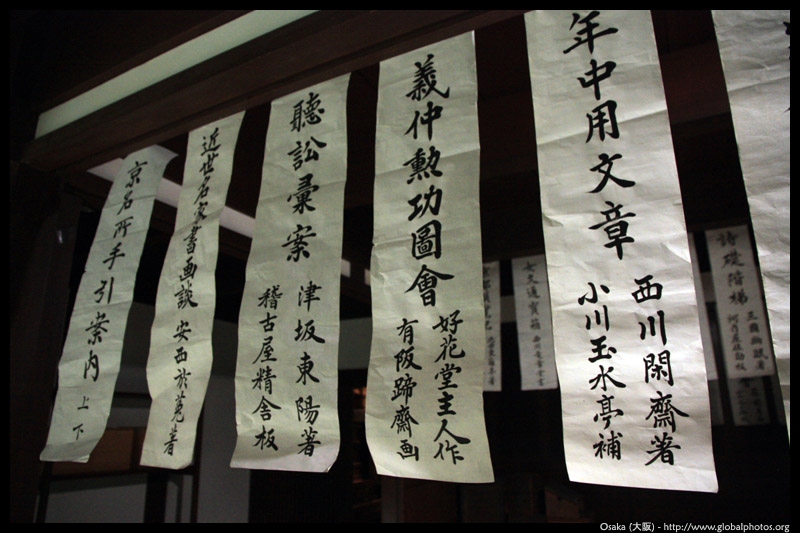 年中用文章
西川閑齋著
小川玉水亭補
義仲勲功圖會
好花堂主人作
有阪蹄齋画
聽訟彙案
津坂東陽著
稽古屋精舎板
近世名家書画談
安西於菟著
京名所手引案内
上下
詩礎階梯
女文通寶箱
Osaka (大阪) - http://www.globalphotos.org